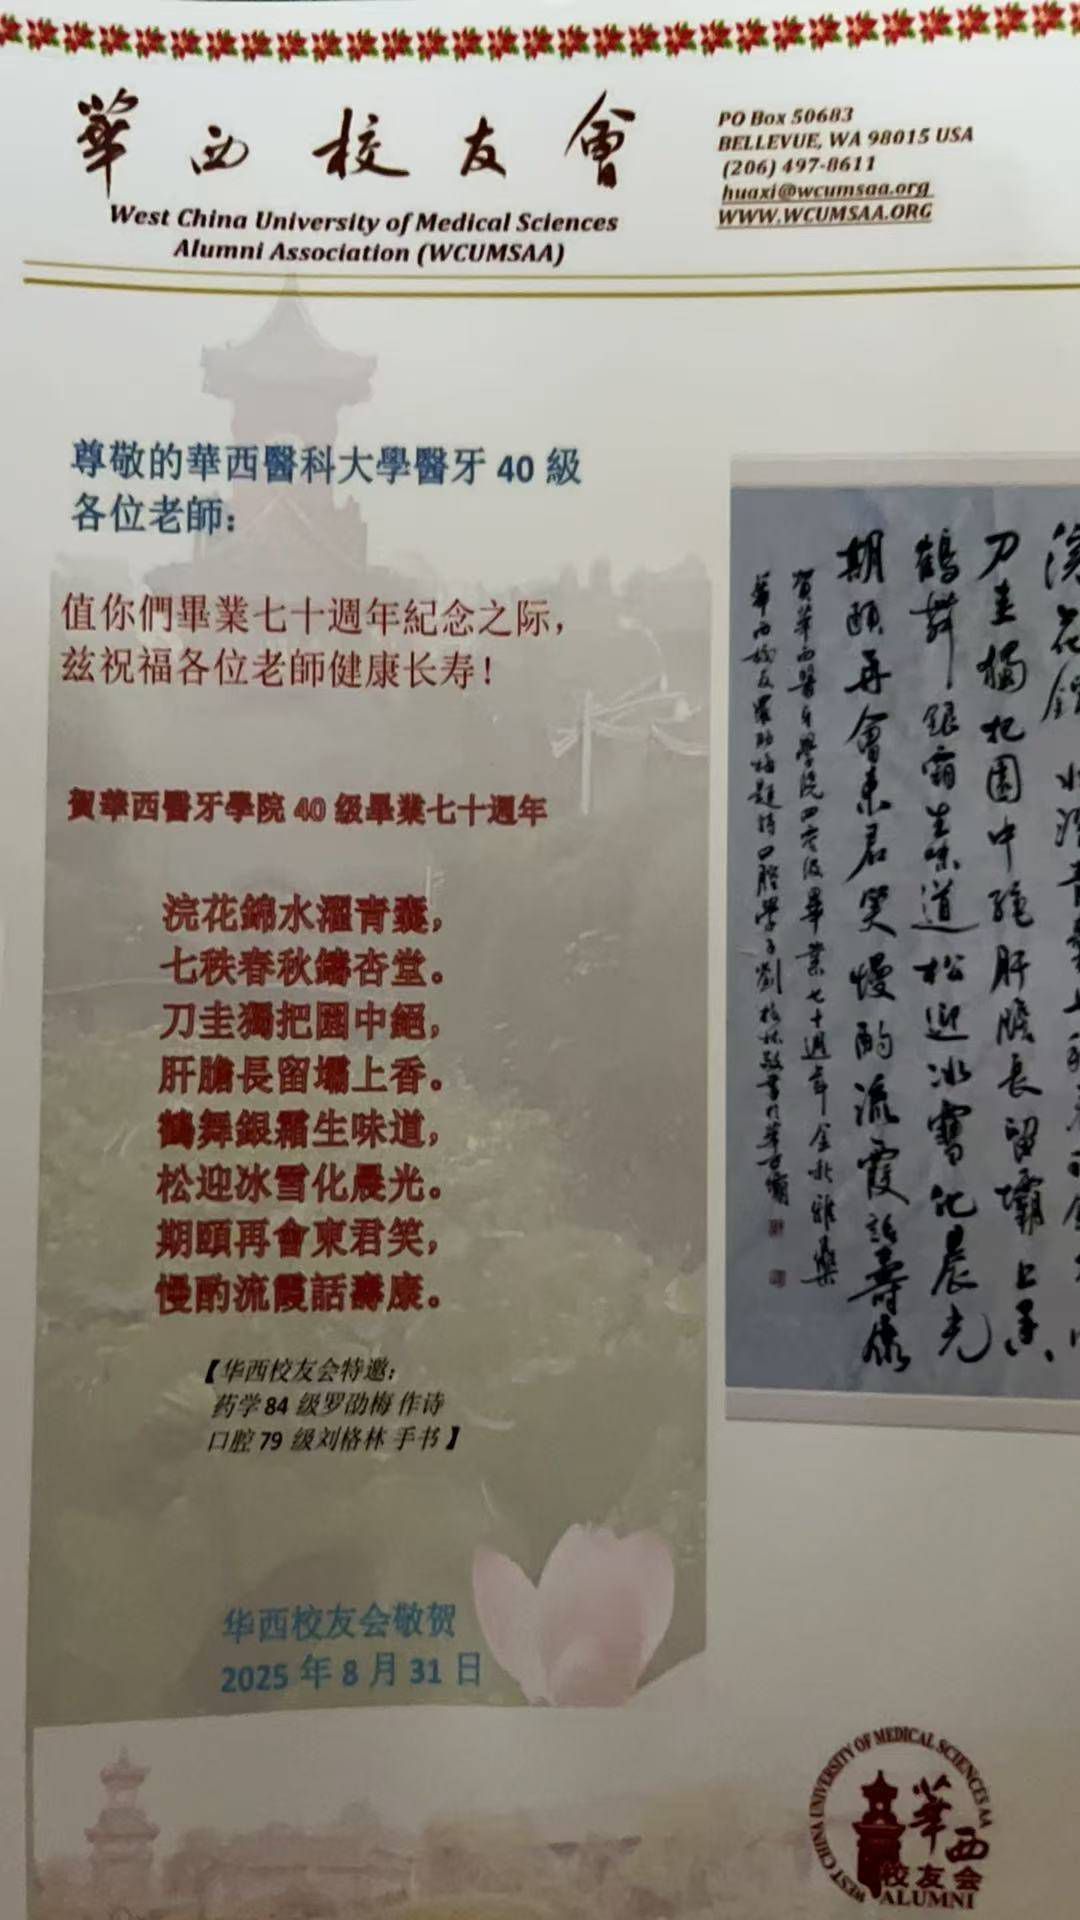 華西校友會
West China University of Medical Sciences
Alumni Association (WCUMSAA)
PO Box 50683
BELLEVUE, WA 98015 USA
(206) 497-8611
huaxi@wcumsaa.org
WWW.WCUMSAA.ORG
尊敬的華西醫科大學醫牙 40 級
各位老師：
值你們畢業七十週年紀念之际，
兹祝福各位老師健康长寿！
賀華西醫牙學院 40 级畢業七十週年
浣花錦水濯青囊，
七秩春秋鑄杏堂。
刀圭獨把園中絕，
肝膽長留壩上香。
鶴舞銀霜生味道，
松迎冰雪化晨光。
期頤再會東君笑，
慢酌流霞話壽康。
【华西校友会特邀：
药学 84 级罗劭梅 作诗
口腔 79 级刘格林 手书】
华西校友会敬贺
2025 年 8 月 31 日
浣花錦水濯青囊七秩
刀圭獨把園中絕肝膽長留壩上香
鶴舞銀霜生味道松迎冰雪化晨光
期頤再會東君笑慢酌流霞話壽康
賀華西醫牙學院四零級畢業七十週年金秋雅集
華西校友羅劭梅題詩口腔學子劉格林敬書於華西壩
WEST CHINA UNIVERSITY OF MEDICAL SCIENCES AA
華西
校友会
ALUMNI